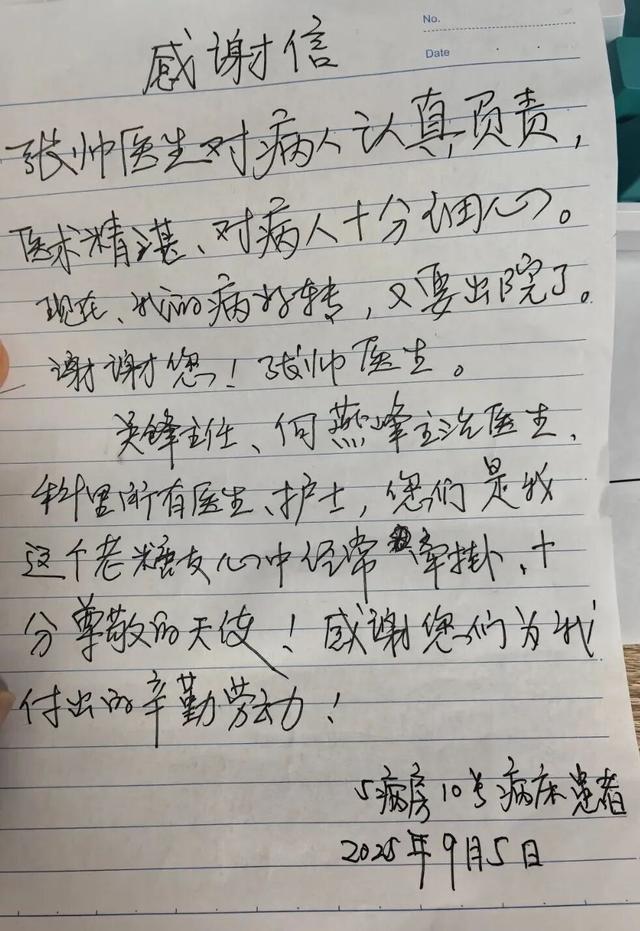 No.
Date
感谢信
张帅医生对病人认真负责，
医术精湛、对病人十分细心。
现在、我的病好转，又要出院了。
谢谢您！张帅医生。
吴锋主任、何燕峰主治医生、
科里所有医生、护士，您们是我
这个老糖友心中经常牵挂、十
分尊敬的天使！感谢您们为我
付出的辛勤劳动！
5病房10号病床患者
2025年9月5日